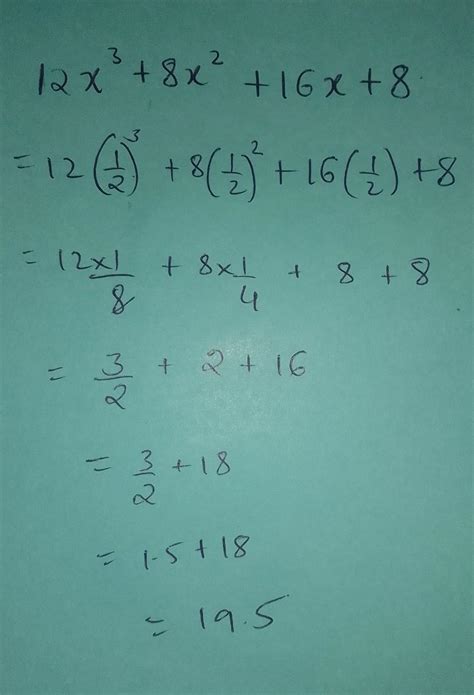 12x³ + 8x² + 16x + 8.
= 12(1/2)³ + 8(1/2)² + 16(1/2) + 8
= 12×1/8 + 8×1/4 + 8 + 8
= 3/2 + 2 + 16
= 3/2 + 18
= 1.5 + 18
= 19.5